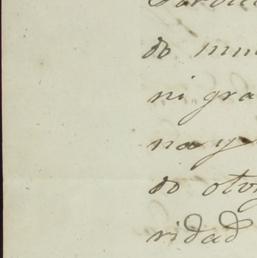 do mu
ni gra
na y
do otor
ridad